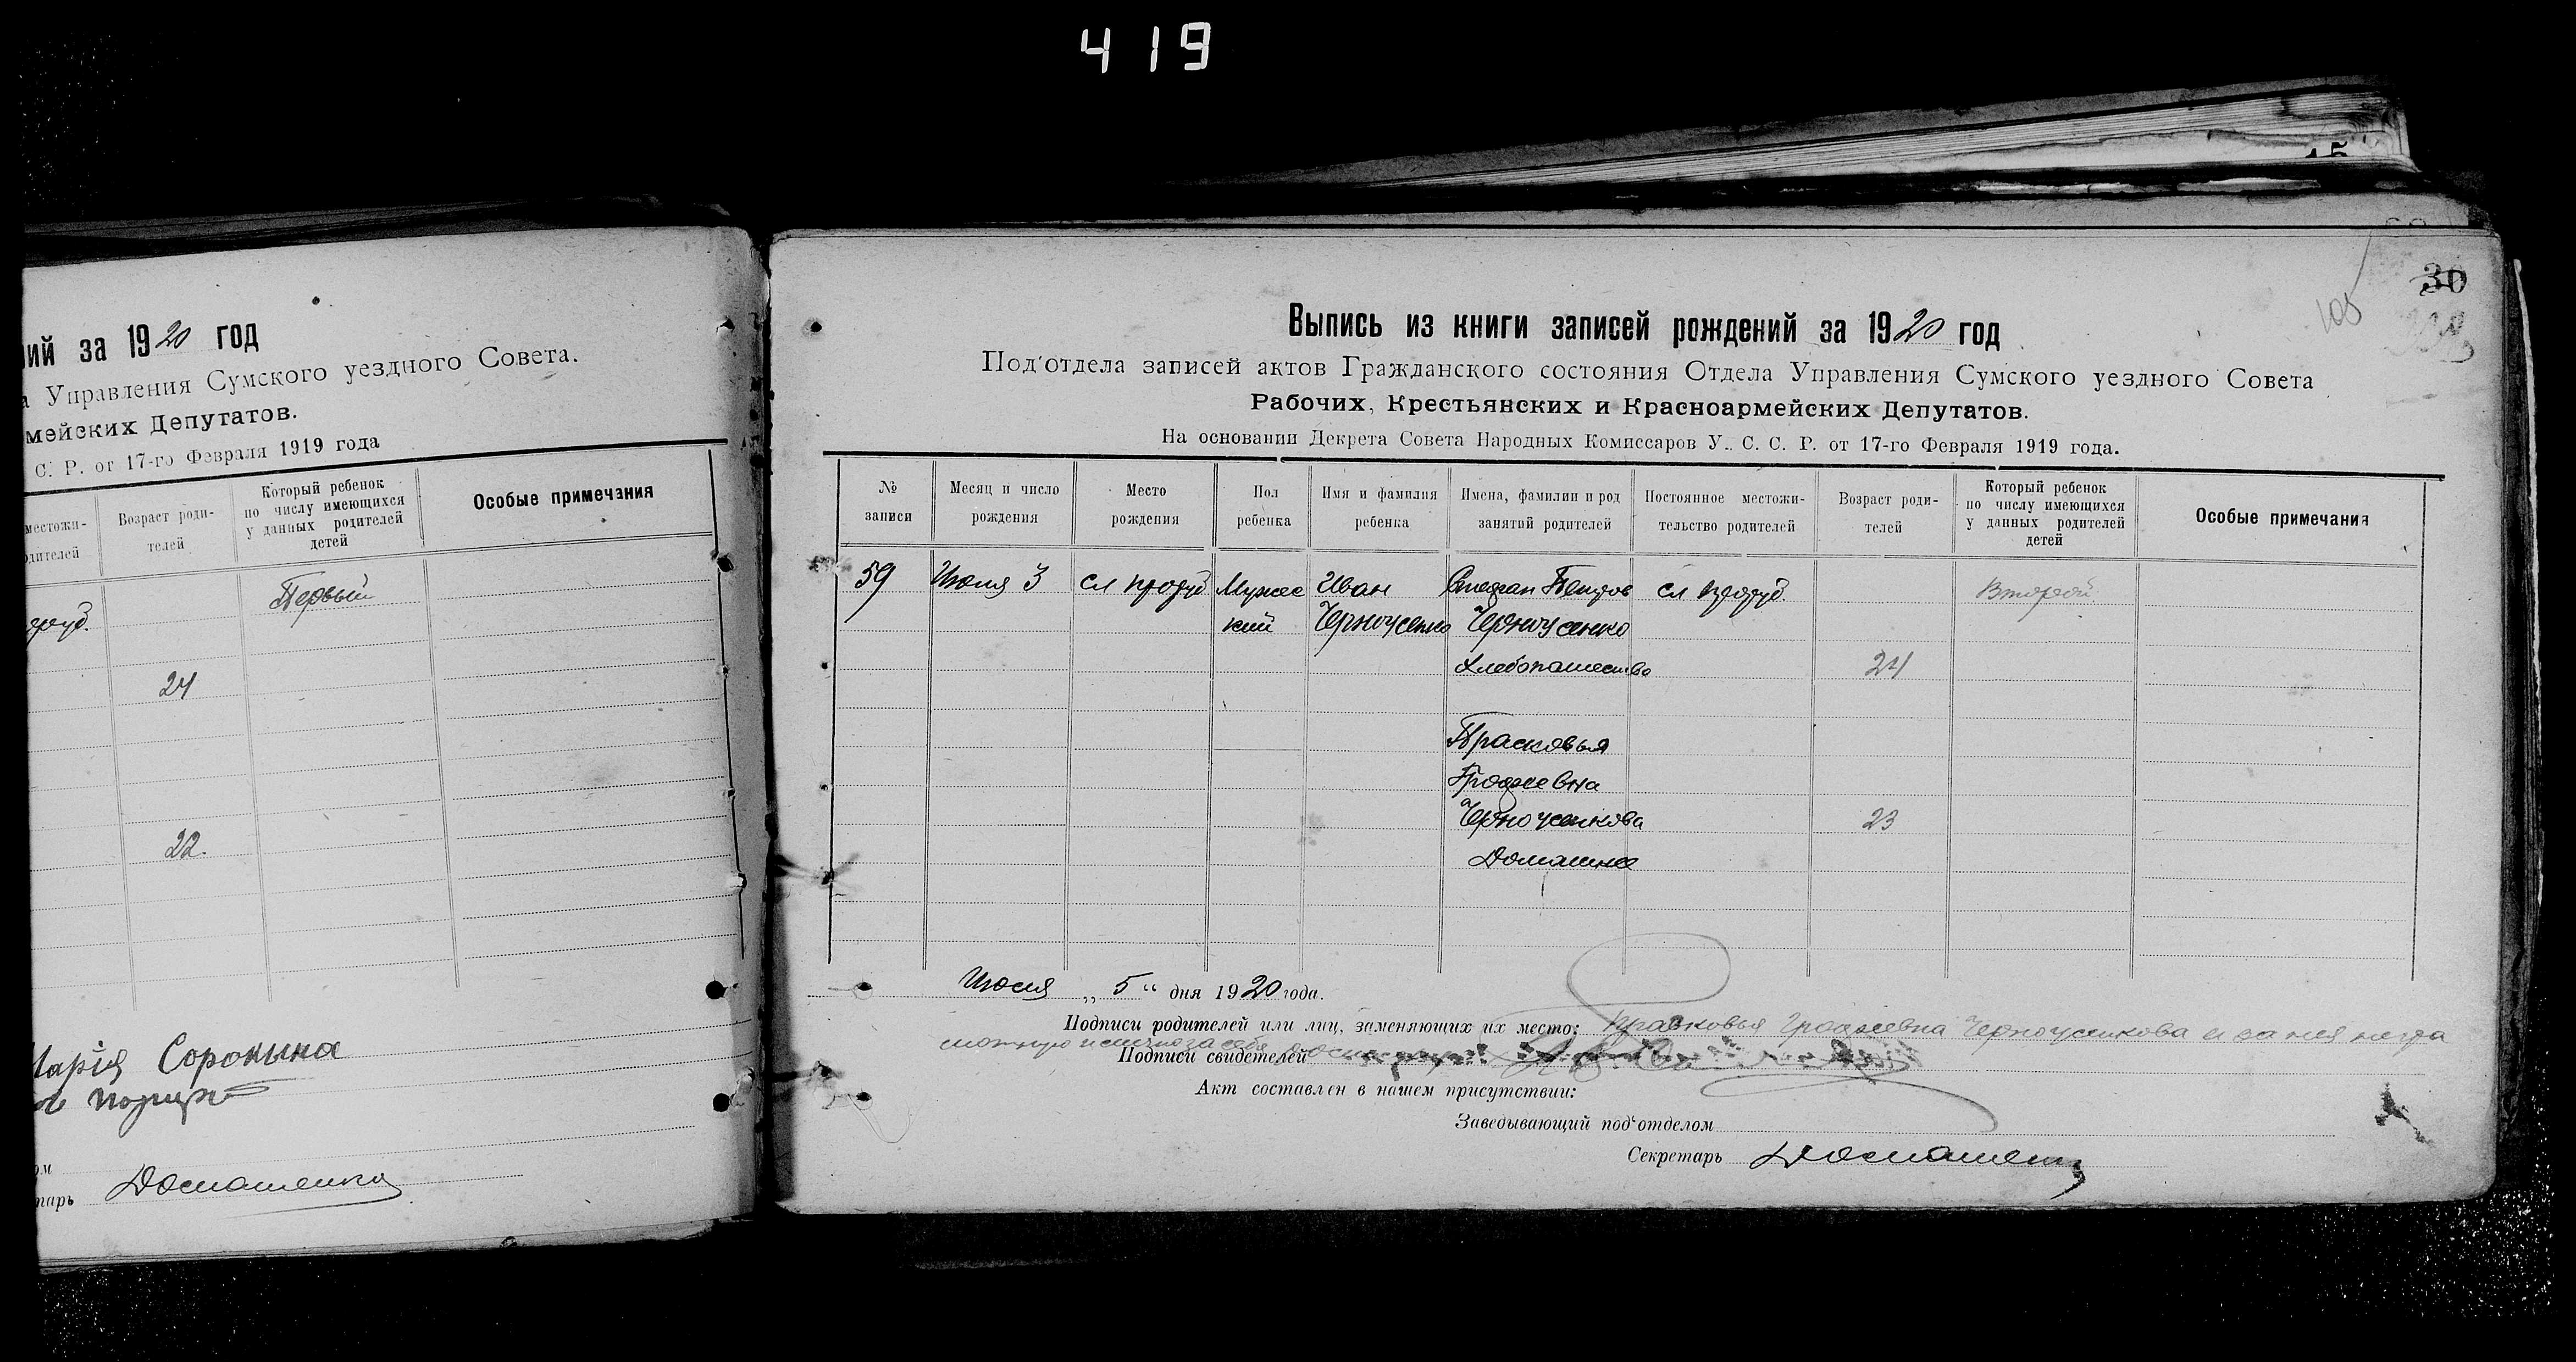 419
30
105
ий за 1920 год
а Управления Сумского уездного Совета.
мейских Депутатов.
С. Р. от 17-го Февраля 1919 года
местожи-
одителей
Возраст роди-
телей
Который ребенок
по числу имеющихся
у данных родителей
детей
Особые примечания
Первый
24
22.
Марія Сорокина
Домашенко
тарь
Выпись из книги записей рождений за 1920 год
Под'отдела записей актов Гражданского состояния Отдела Управления Сумского уездного Совета
Рабочих, Крестьянских и Красноармейских Депутатов.
На основании Декрета Совета Народных Комиссаров У. С. С. Р. от 17-го Февраля 1919 года.
№
записи
Месяц и число
рождения
Место
рождения
Пол
ребенка
Имя и фамилия
ребенка
Имена, фамилии и род
занятий родителей
Постоянное местожи-
тельство родителей
Возраст роди-
телей
Который ребенок
по числу имеющихся
у данных родителей
детей
Особые примечания
59 Июля 3 сл Мужес Иван Степан Петров сл Второй
кий Черноусенко Черноусенко
Хлебопашество 24
Прасковья
Черноусенкова 23
Домашнее
Июля „ 5 “ дня 1920 года.
Подписи родителей или лиц, заменяющих их место: Прасковья Черноусенкова и за нея
Подписи свидетелей
Акт составлен в нашем присутствии:
Заведывающий под'отделом
Секретарь Домашенко